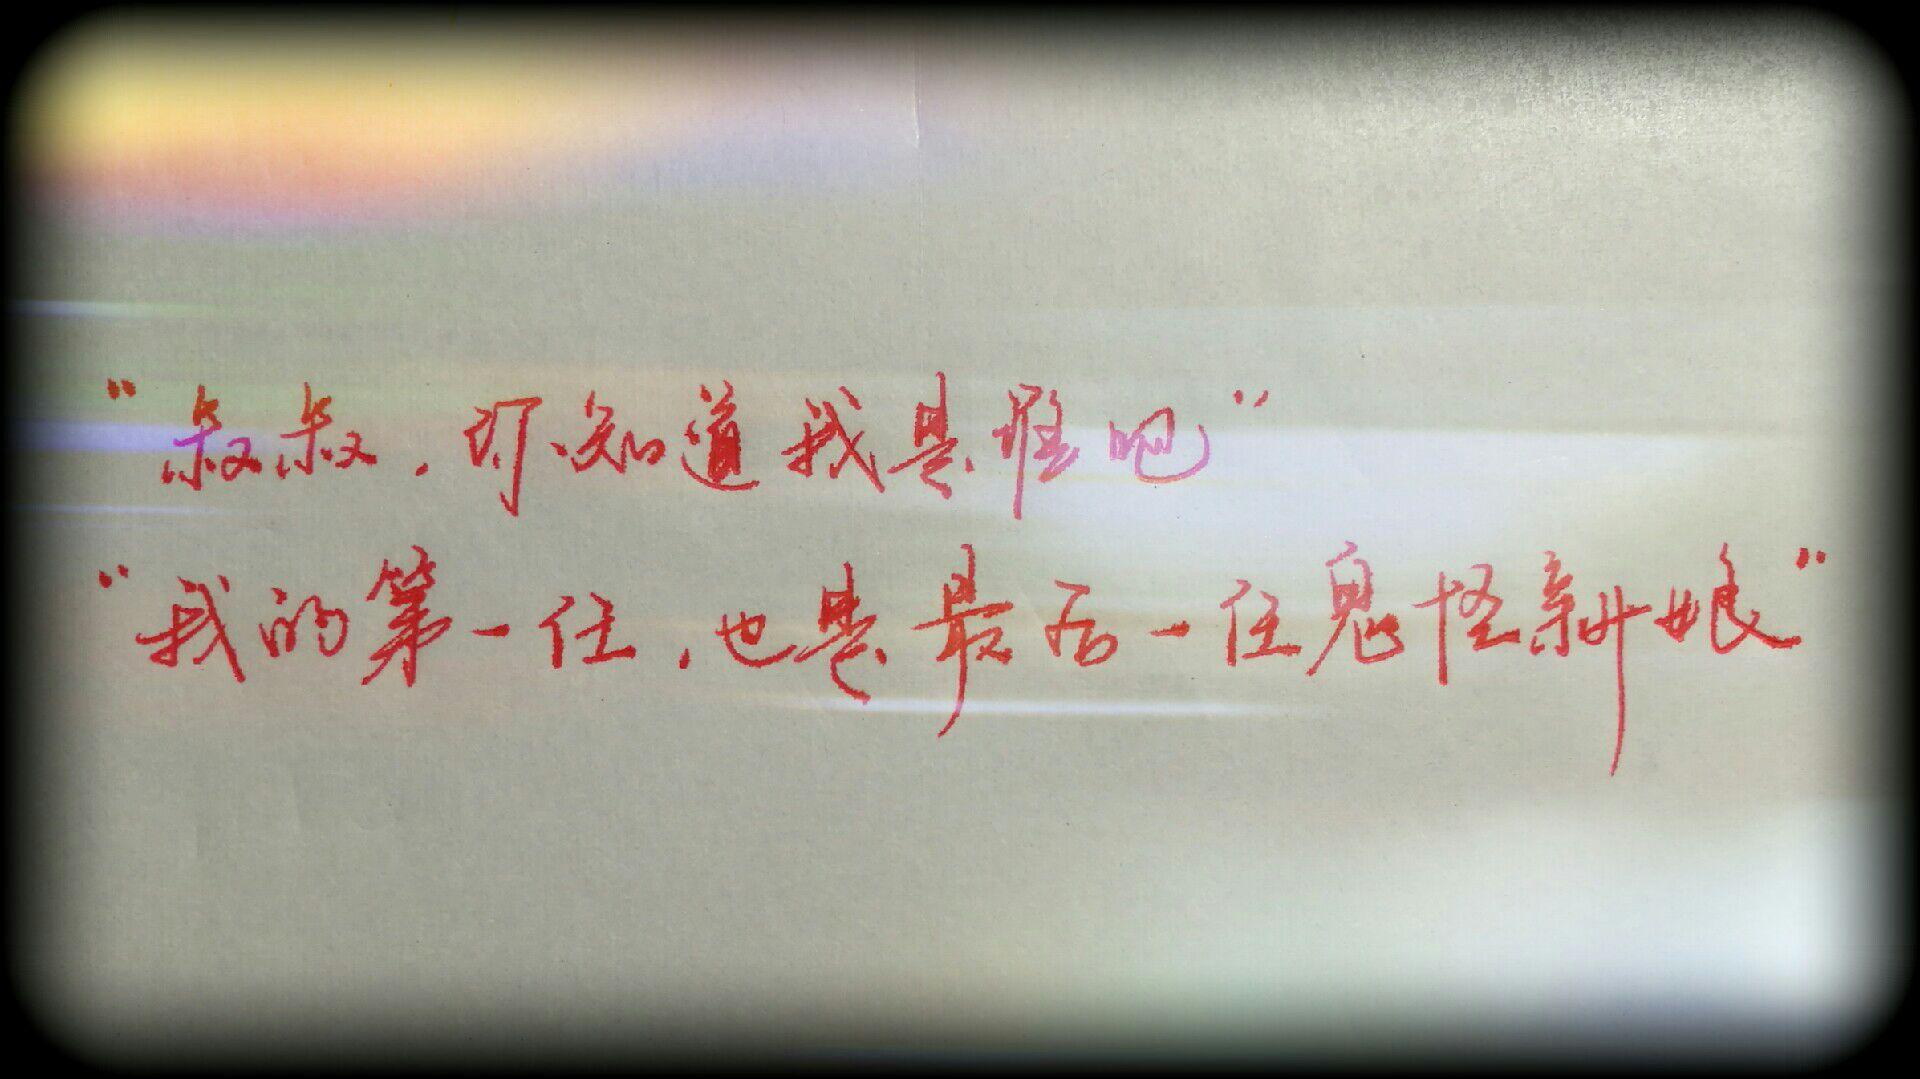 “叔叔，你知道我是谁吧”
“我的第一任，也是最后一任鬼怪新娘”